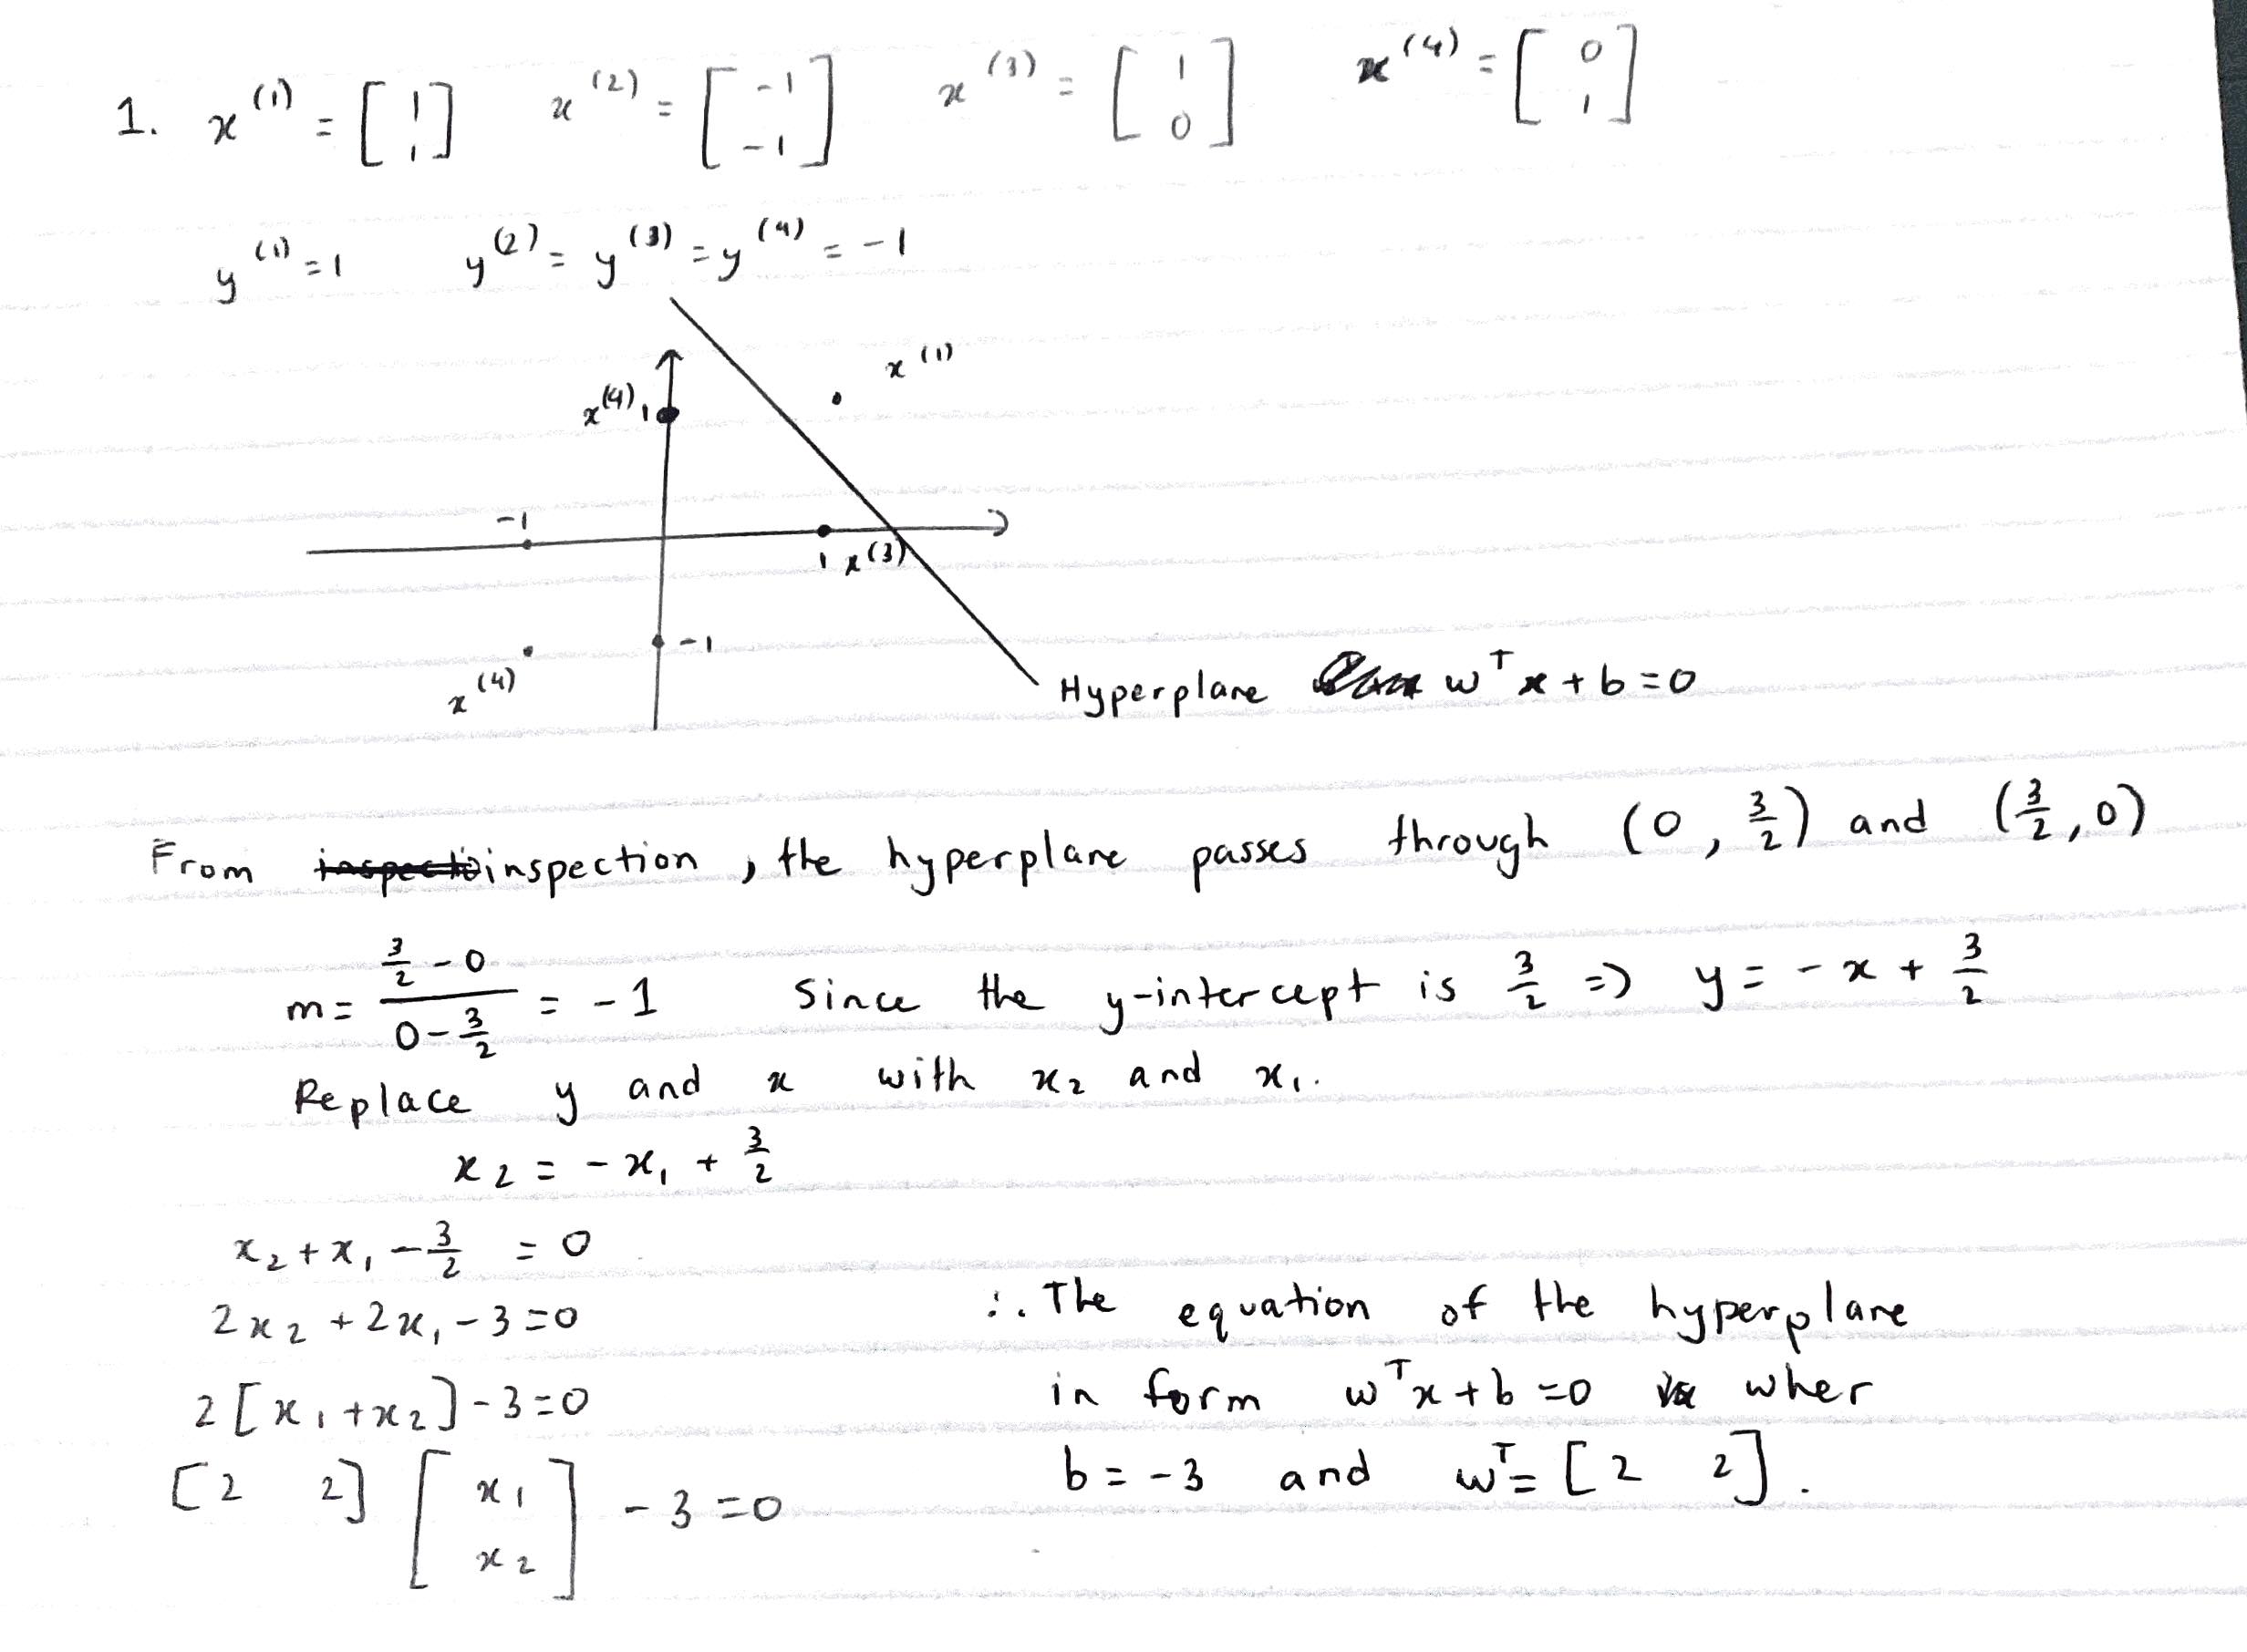 1. x^(1) = [1 1] x^(2) = [-1 -1] x^(3) = [1 0] x^(4) = [0 1]
y^(1) = 1 y^(2) = y^(3) = y^(4) = -1
x^(1)
x^(4) 1
-1
1 x^(3)
-1
x^(4)
Hyperplane w^T x + b = 0
From inspection, the hyperplane passes through (0, 3/2) and (3/2, 0)
m = (3/2 - 0)/(0 - 3/2) = -1 Since the y-intercept is 3/2 => y = -x + 3/2
Replace y and x with x_2 and x_1.
x_2 = -x_1 + 3/2
x_2 + x_1 - 3/2 = 0
2x_2 + 2x_1 - 3 = 0
2[x_1 + x_2] - 3 = 0
[2 2] [x_1 x_2] - 3 = 0
∴ The equation of the hyperplane
in form w^T x + b = 0 wher
b = -3 and w^T = [2 2].